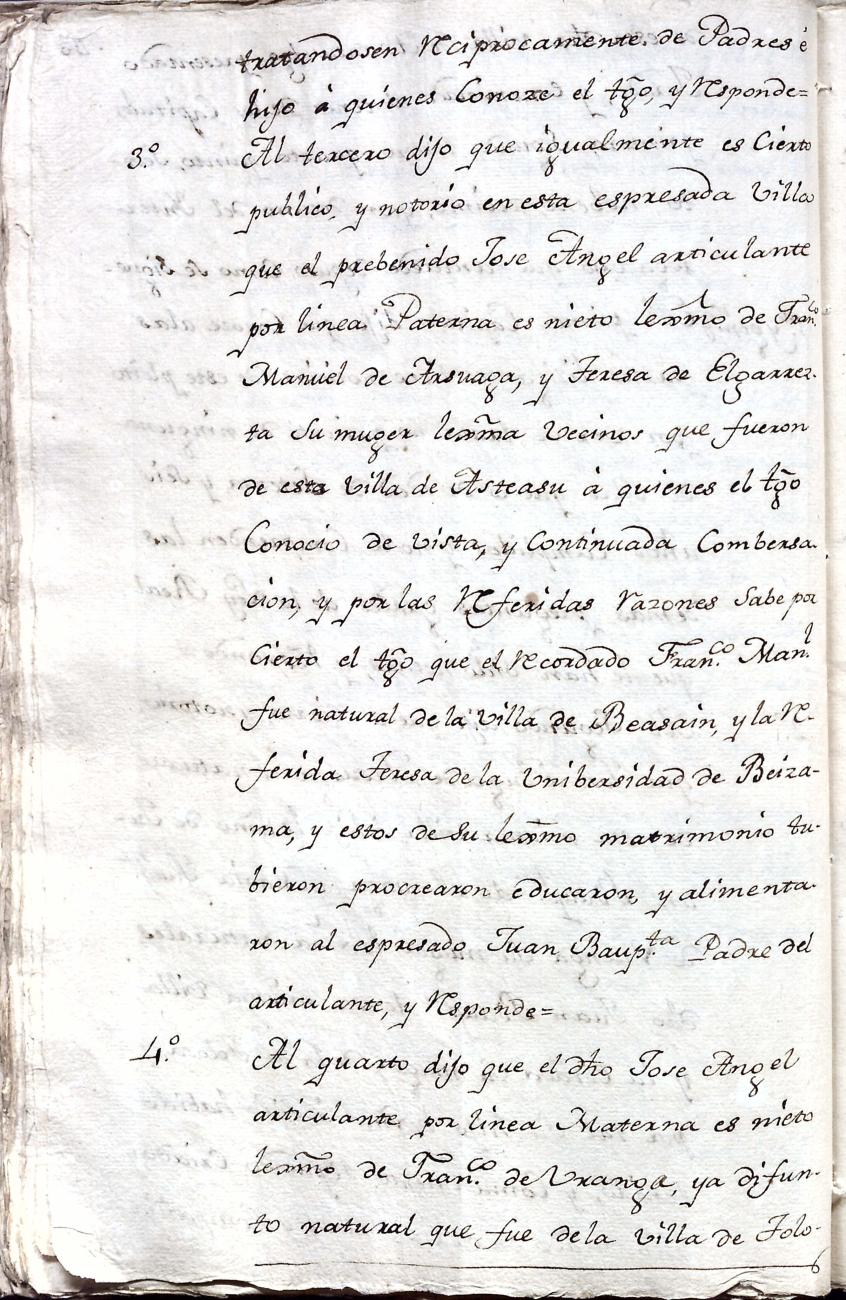 tratandosen Rciprocamente de Padres é
hijo á quienes Conoze el tgo, y Rsponde=
3.º Al tercero dijo que igualmente es Cierto
publico, y notorio en esta espresada Villa
que el prebenido Jose Angel articulante
por linea Paterna es nieto lexmo de Fran.co
Manuel de Arsuaga, y Teresa de Elgarrez-
ta Su muger lexma Vecinos que fueron
de esta Villa de Asteasu á quienes el tgo
Conocio de vista, y Continuada Combersa-
cion, y por las Rferidas razones Sabe por
Cierto el tgo que el Recordado Fran.co Man.l
fue natural de la Villa de Beasain, y la R-
ferida Teresa de la Unibersidad de Beiza-
ma, y estos de Su lexmo matrimonio tu-
bieron procrearon educaron, y alimenta-
ron al espresado Juan Baup.ta Padre del
articulante, y Rsponde=
4.º Al quarto dijo que el dho Jose Angel
articulante por linea Materna es nieto
lexmo de Fran.co de Vranga, ya difun-
to natural que fue de la Villa de Tolo-